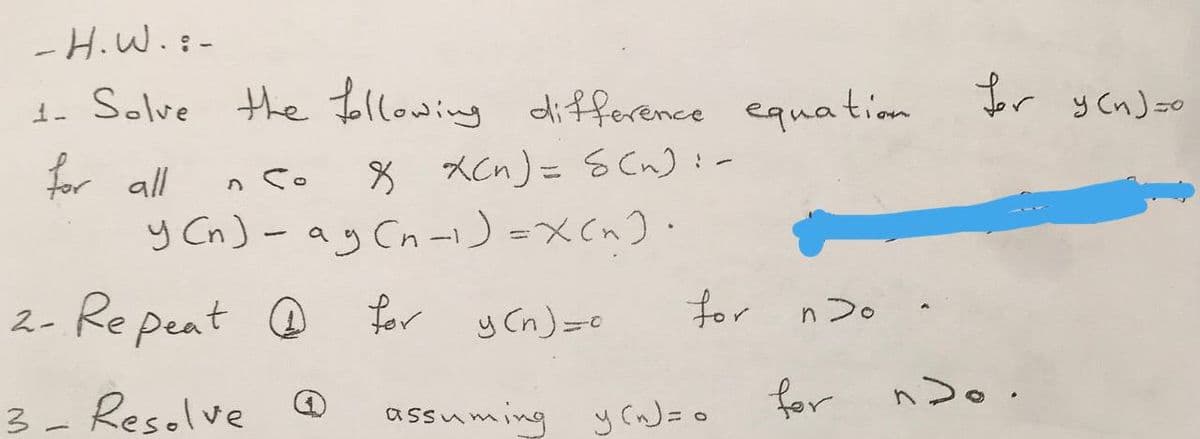 - H.W. :-
1- Solve the following difference equation for y(n)=0
for all n<0 & x(n)= δ(n) :-
y(n) - ay(n-1) = x(n).
2- Repeat ① for y(n)=0 for n>0.
3- Resolve ① assuming y(n)=0 for n>0.